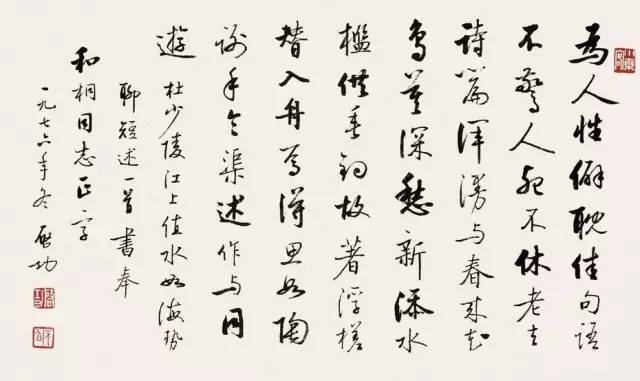 为人性僻耽佳句语
不驚人死不休老去
诗篇浑漫与春来花
鸟莫深愁新添水
槛供垂钓故著浮槎
替入舟焉得思如陶
谢手令渠述作与同
遊 杜少陵江上值水如海势
聊短述一首 書奉
和桐同志正字
一九七六年冬 启功